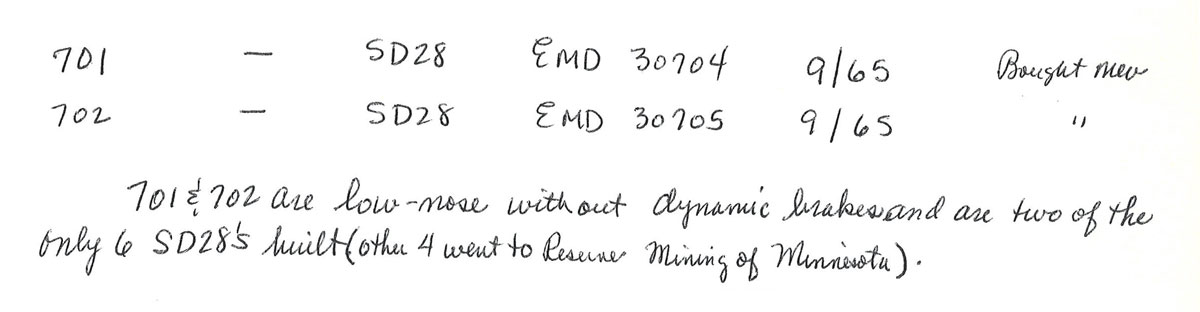 701 — SD28 EMD 30704 9/65 Bought new
702 — SD28 EMD 30705 9/65 "
701 & 702 are low-nose without dynamic brakes and are two of the
only 6 SD28's built (other 4 went to Reserve Mining of Minnesota).